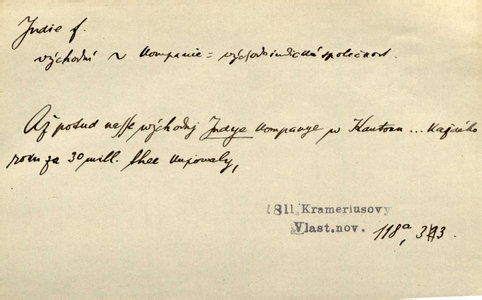 Indie f.
východní ~ Kompanie = východoindická společnost.
Až posud nesse východnj Indye Kompanye w Kantonu ... každého
roku za 30 mill. thee kupowaly,
1811 Krameriusovy
Vlast. nov. 118a, 313.